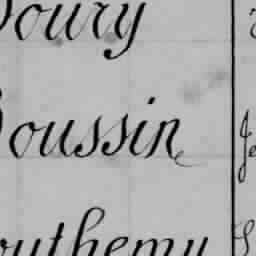 oury
oussin
outhemy